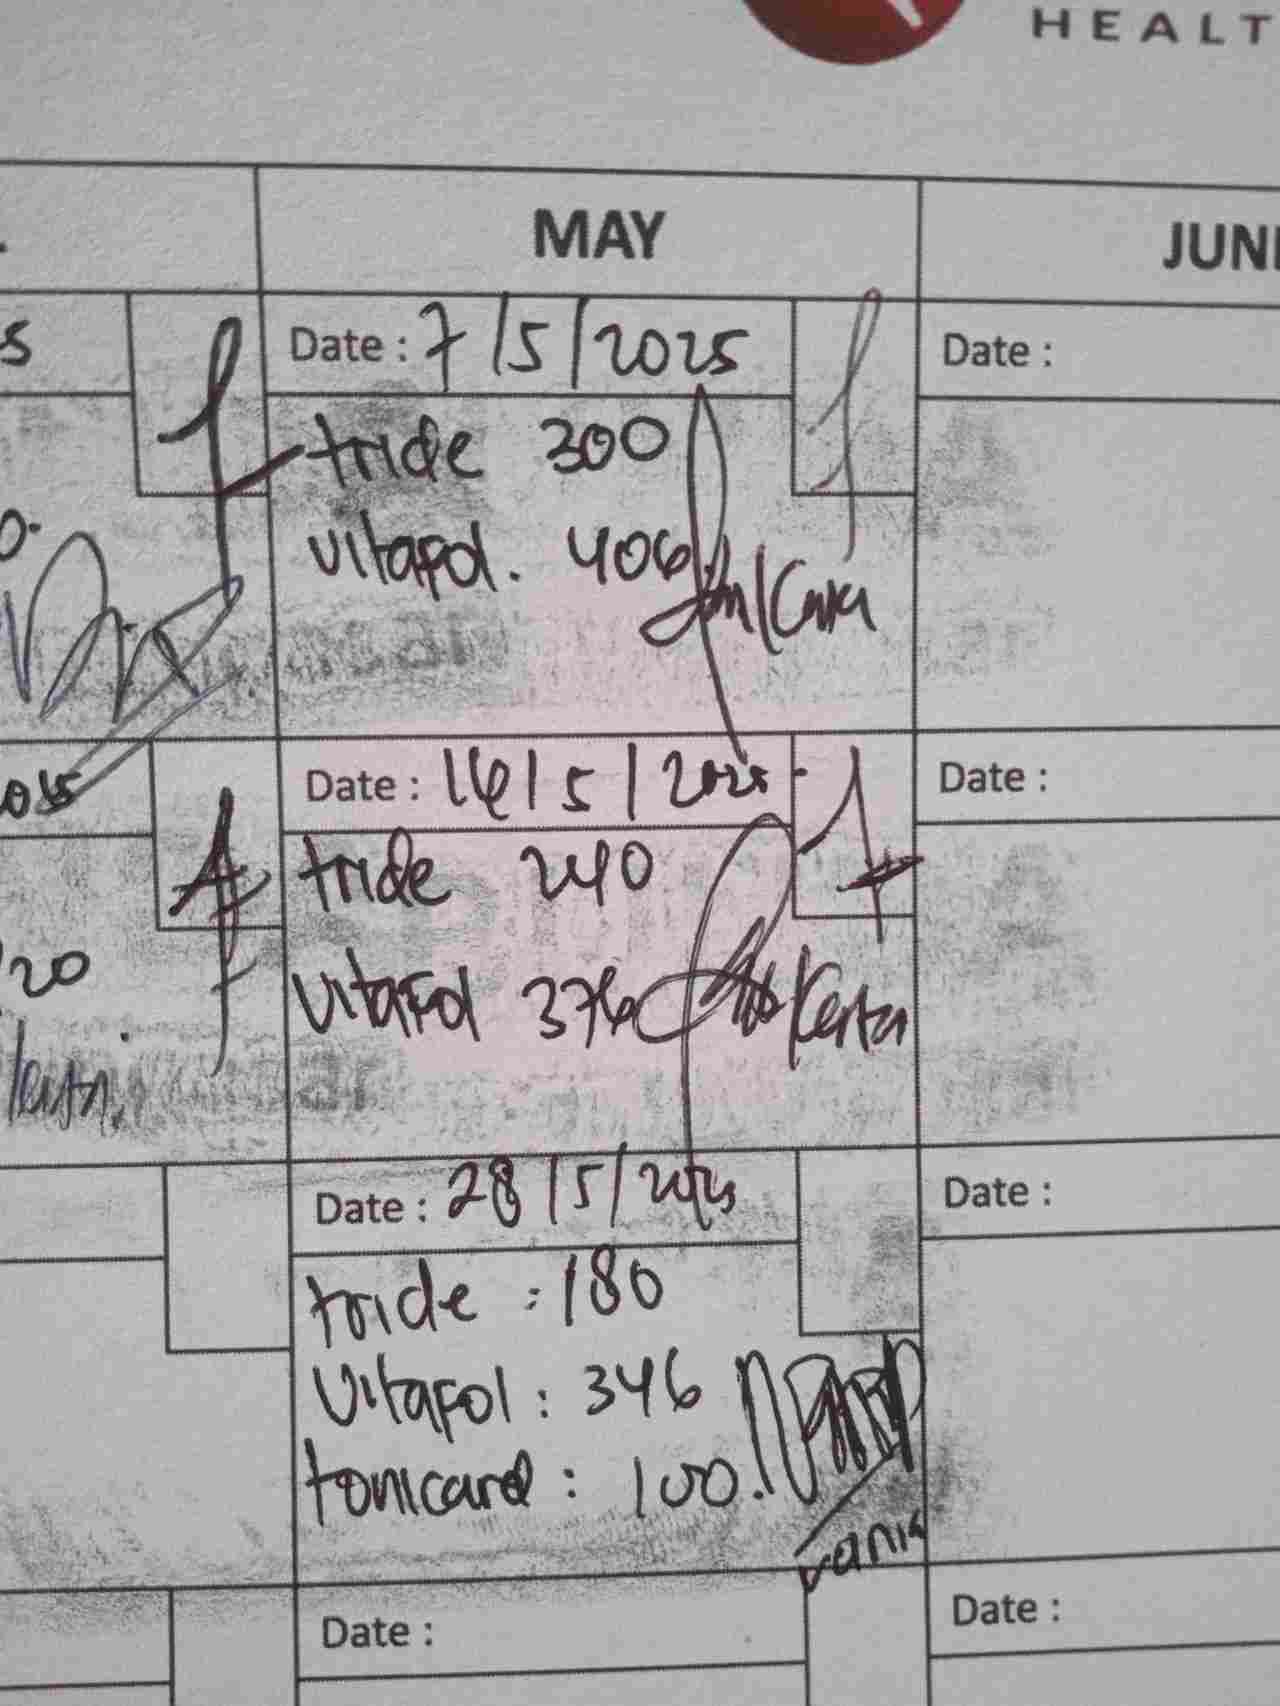 HEALT
MAY
JUNE
Date : 7/5/2025
Date :
tride 300
vitafol. 406
Date : 14/5/2025
Date :
tride 240
vitafol 376
20
Date : 28/5/2025
Date :
tride : 180
vitafol : 346
tonicard : 100.
vania
Date :
Date :